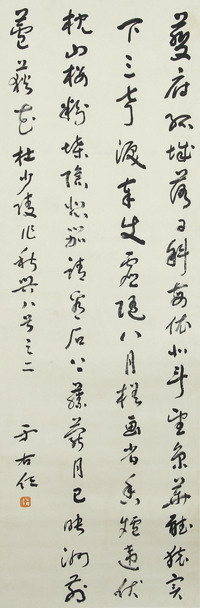 夔府孤城落日斜每依北斗望京華聽猿實
下三聲淚奉使虛隨八月槎畫省香爐違伏
枕山樓粉堞隱悲笳請看石上藤蘿月已映洲前
蘆荻花 杜少陵作秋興八首之二 于右任